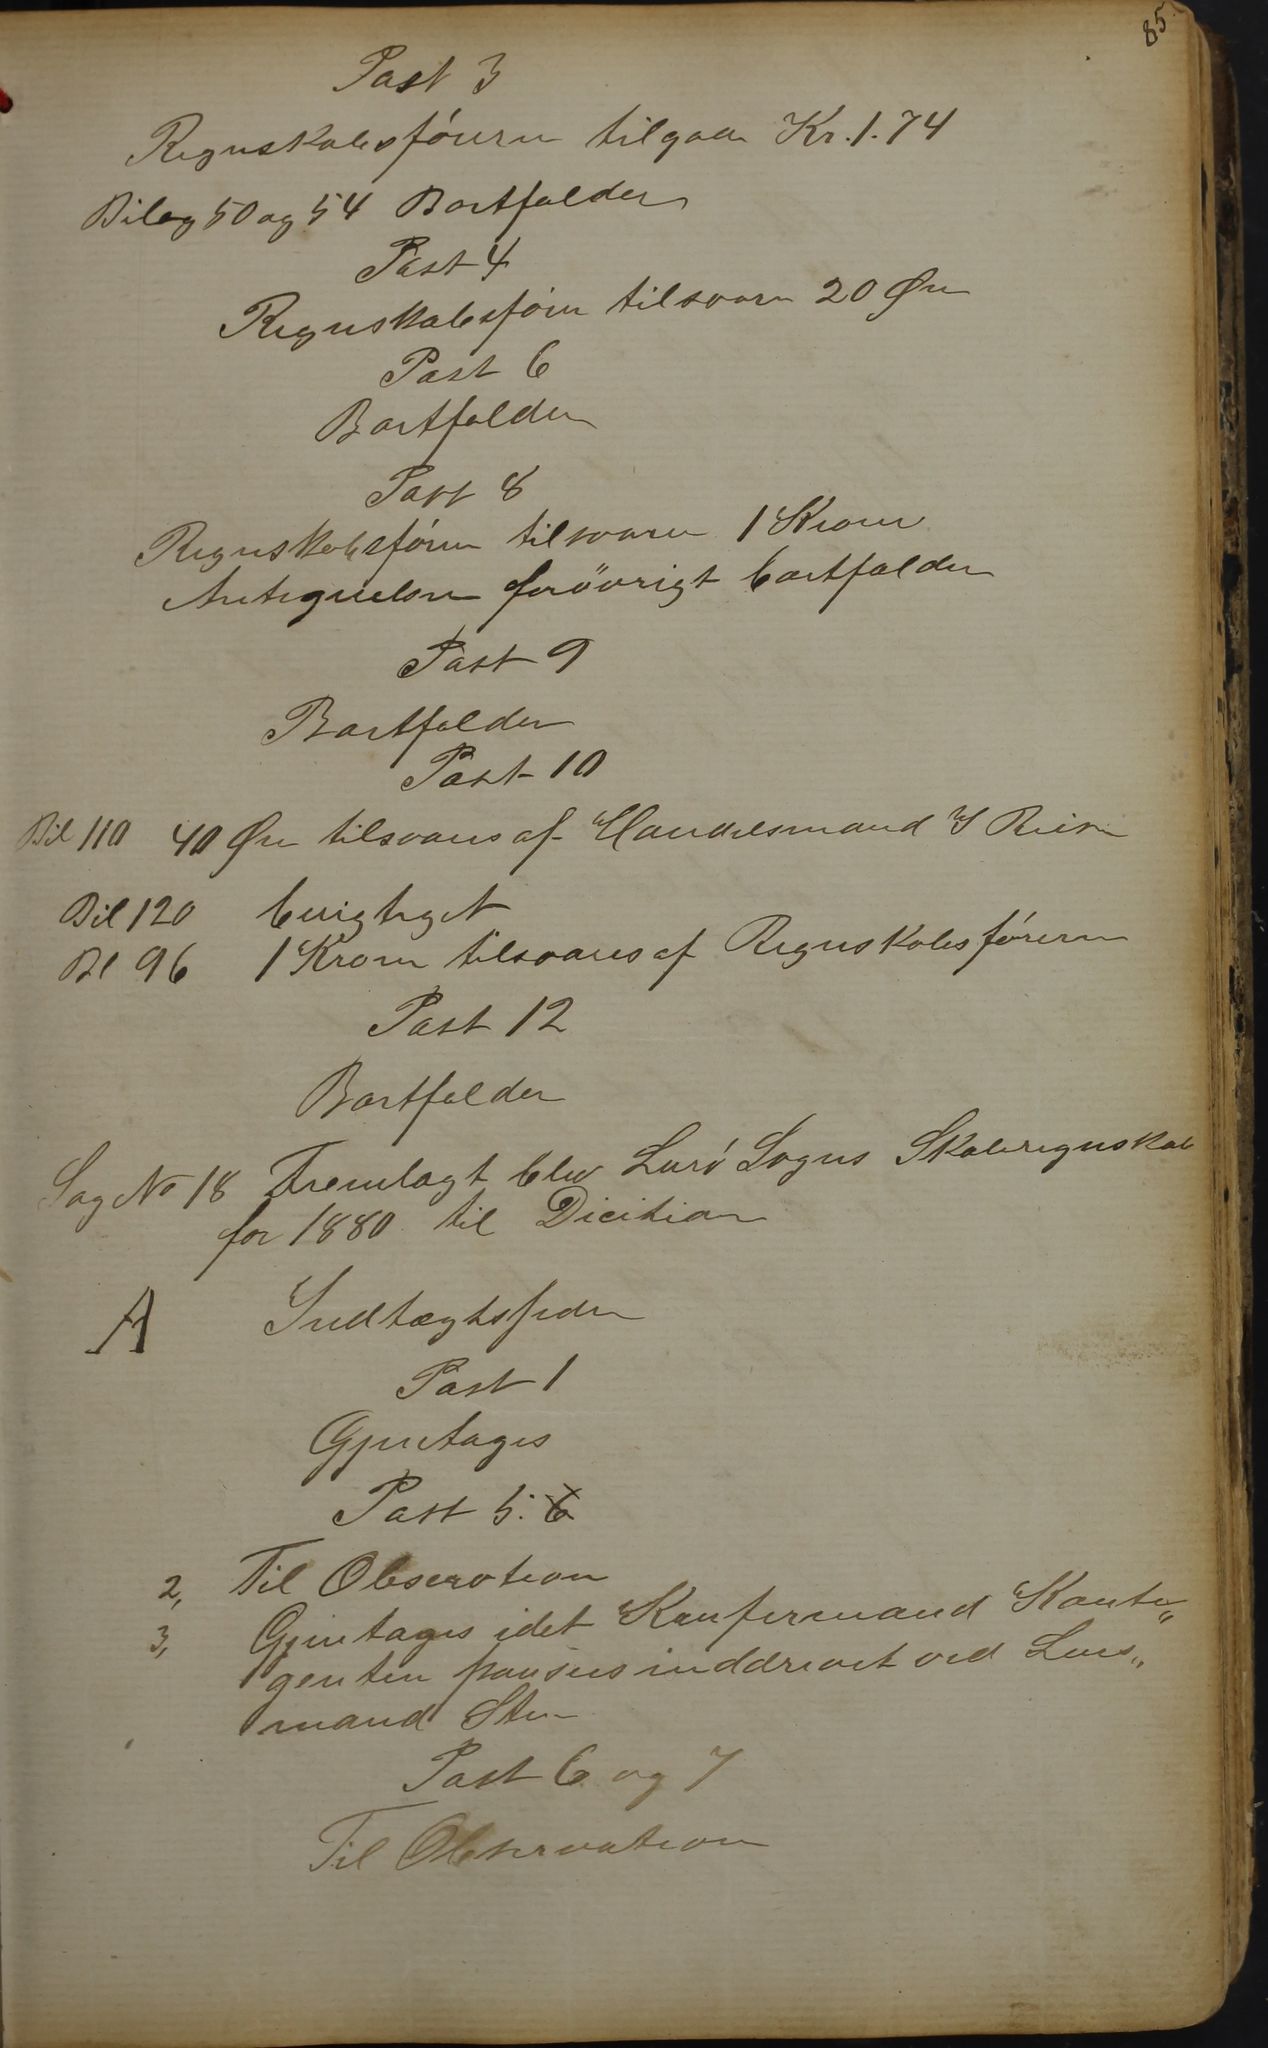 85
Post 3
Regnskabsføreren tilgode Kr. 1.74
Bilag 50 og 54 Bortfalder
Post 4
Regnskabsfører tilsvarer 20 Øre
Post 6
Bortfalder
Post 8
Regnskabsfører tilsvarer 1 Krone
Antegnelsen forövrigt bortfalder
Post 9
Bortfalder
Post 10
Bil 110 40 Øre tilsvares af Handelsmand
Bil 120 berigtiget
Bil 96 1 Krone tilsvares af Regnskabsføreren
Post 12
Bortfalder
Sag No 18 Fremlagt blev Lurö Sogns Skoleregnskab
for 1880 til Decition
A Indtægtsfiden
Post 1
Gjentages
Post 5. 6
2, Til Observation
3, Gjentages idet Konfermand Konte„
genten paasees inddrevet ved Lens„
mand
Post 6 og 7
Til Observation